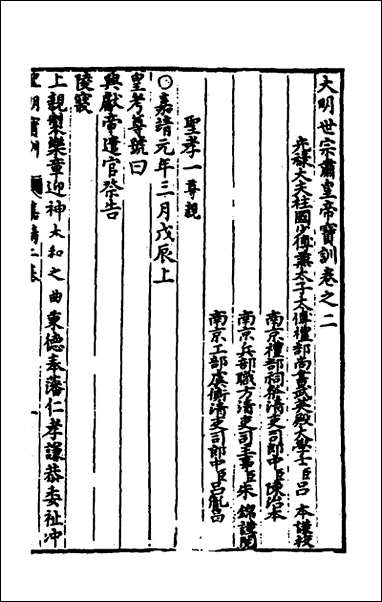 大明世宗肅皇帝寶訓卷之二
光祿大夫柱國少傅兼太子太傅禮部尚書武英殿大學士臣呂 本謹校
南京禮部祠祭清吏司郎中臣陳治本
南京兵部職方清吏司主事臣朱 錦謹閱
南京工部虞衡清吏司郎中臣呂胤昌
聖孝一尊親
○嘉靖元年三月戊辰上
皇考尊號曰
興獻帝遣官祭告
陵寢
上親製樂章迎神太和之曲秉德奉藩仁孝謙恭委祉冲